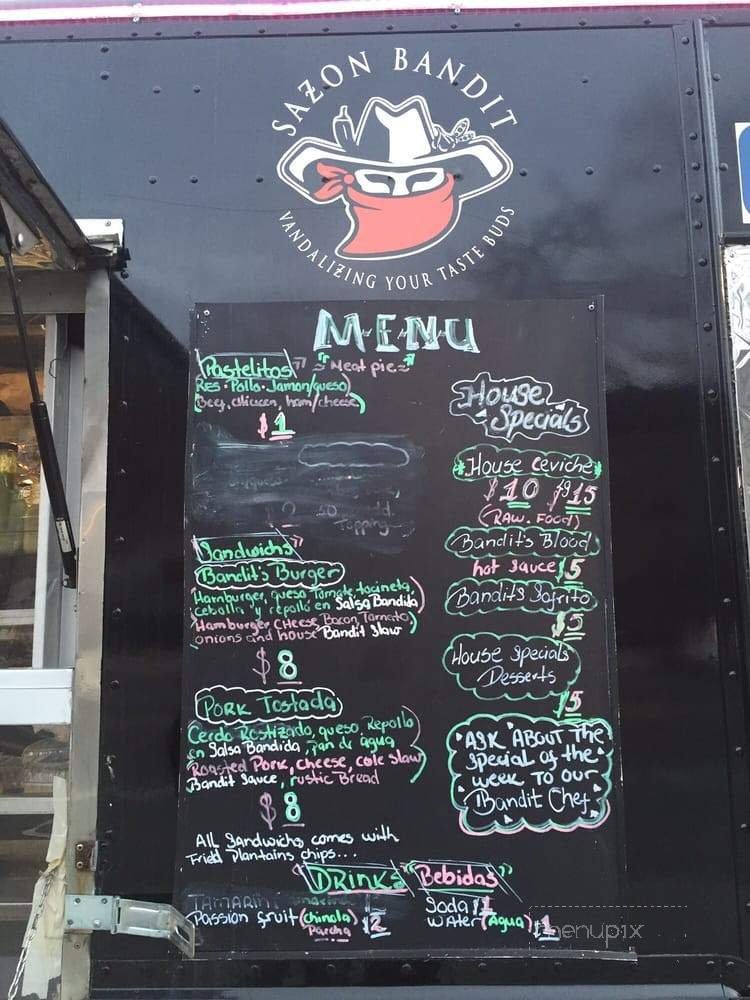 SAZON BANDIT
VANDALIZING YOUR TASTE BUDS
MENU
Pastelitos
"Meat pies"
Res. Pollo. Jamon/queso)
Beef, chicken, ham/cheese)
$1
Topping
Sandwichs"
Bandit's Burger
Hamburger, queso Tomate, tocineta,
cebolla y repollo en Salsa Bandida
Hamburger Cheese, Bacon, Tomato,
onions and house Bandit Slaw
$8
PORK Tostada
Cerdo Rostizado, queso, Repollo
en Salsa Bandida, pan de agua
Roasted Pork, cheese, cole Slaw
Bandit Sauce, rustic Bread
$8
All Sandwichs comes with
Fried Plantains chips...
House
Specials
House Ceviche
$10 $15
(RAW. FOOD)
Bandit's Blood
hot sauce $5
Bandits Sofrito
$5
House Specials
Desserts
$5
ASK ABOUT The
special of the
week TO our
Bandit Chef
DRINKS "Bebidas"
TAMARIN
Passion fruit (Chinola) $2
Parcha
Soda $1
Water (Agua) $1
menupix